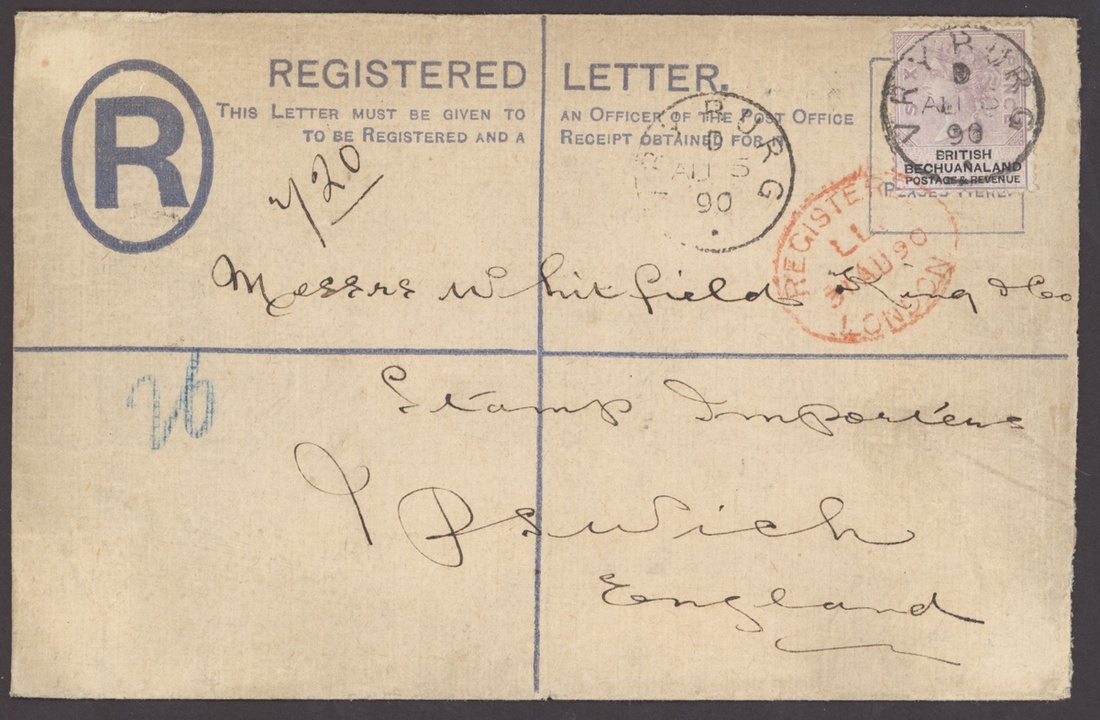 R
REGISTERED LETTER.
THIS LETTER MUST BE GIVEN TO AN OFFICER OF THE POST OFFICE
TO BE REGISTERED AND A RECEIPT OBTAINED FOR
SIXPENCE
BRITISH
BECHUANALAND
POSTAGE & REVENUE
VRYBURG
AU
90
RYBURG
D
AU 5
90
REGISTERED
LL
AU90
LONDON
720
Messrs Whitfield King & Co
26
Stamp Importers
Ipswich
England